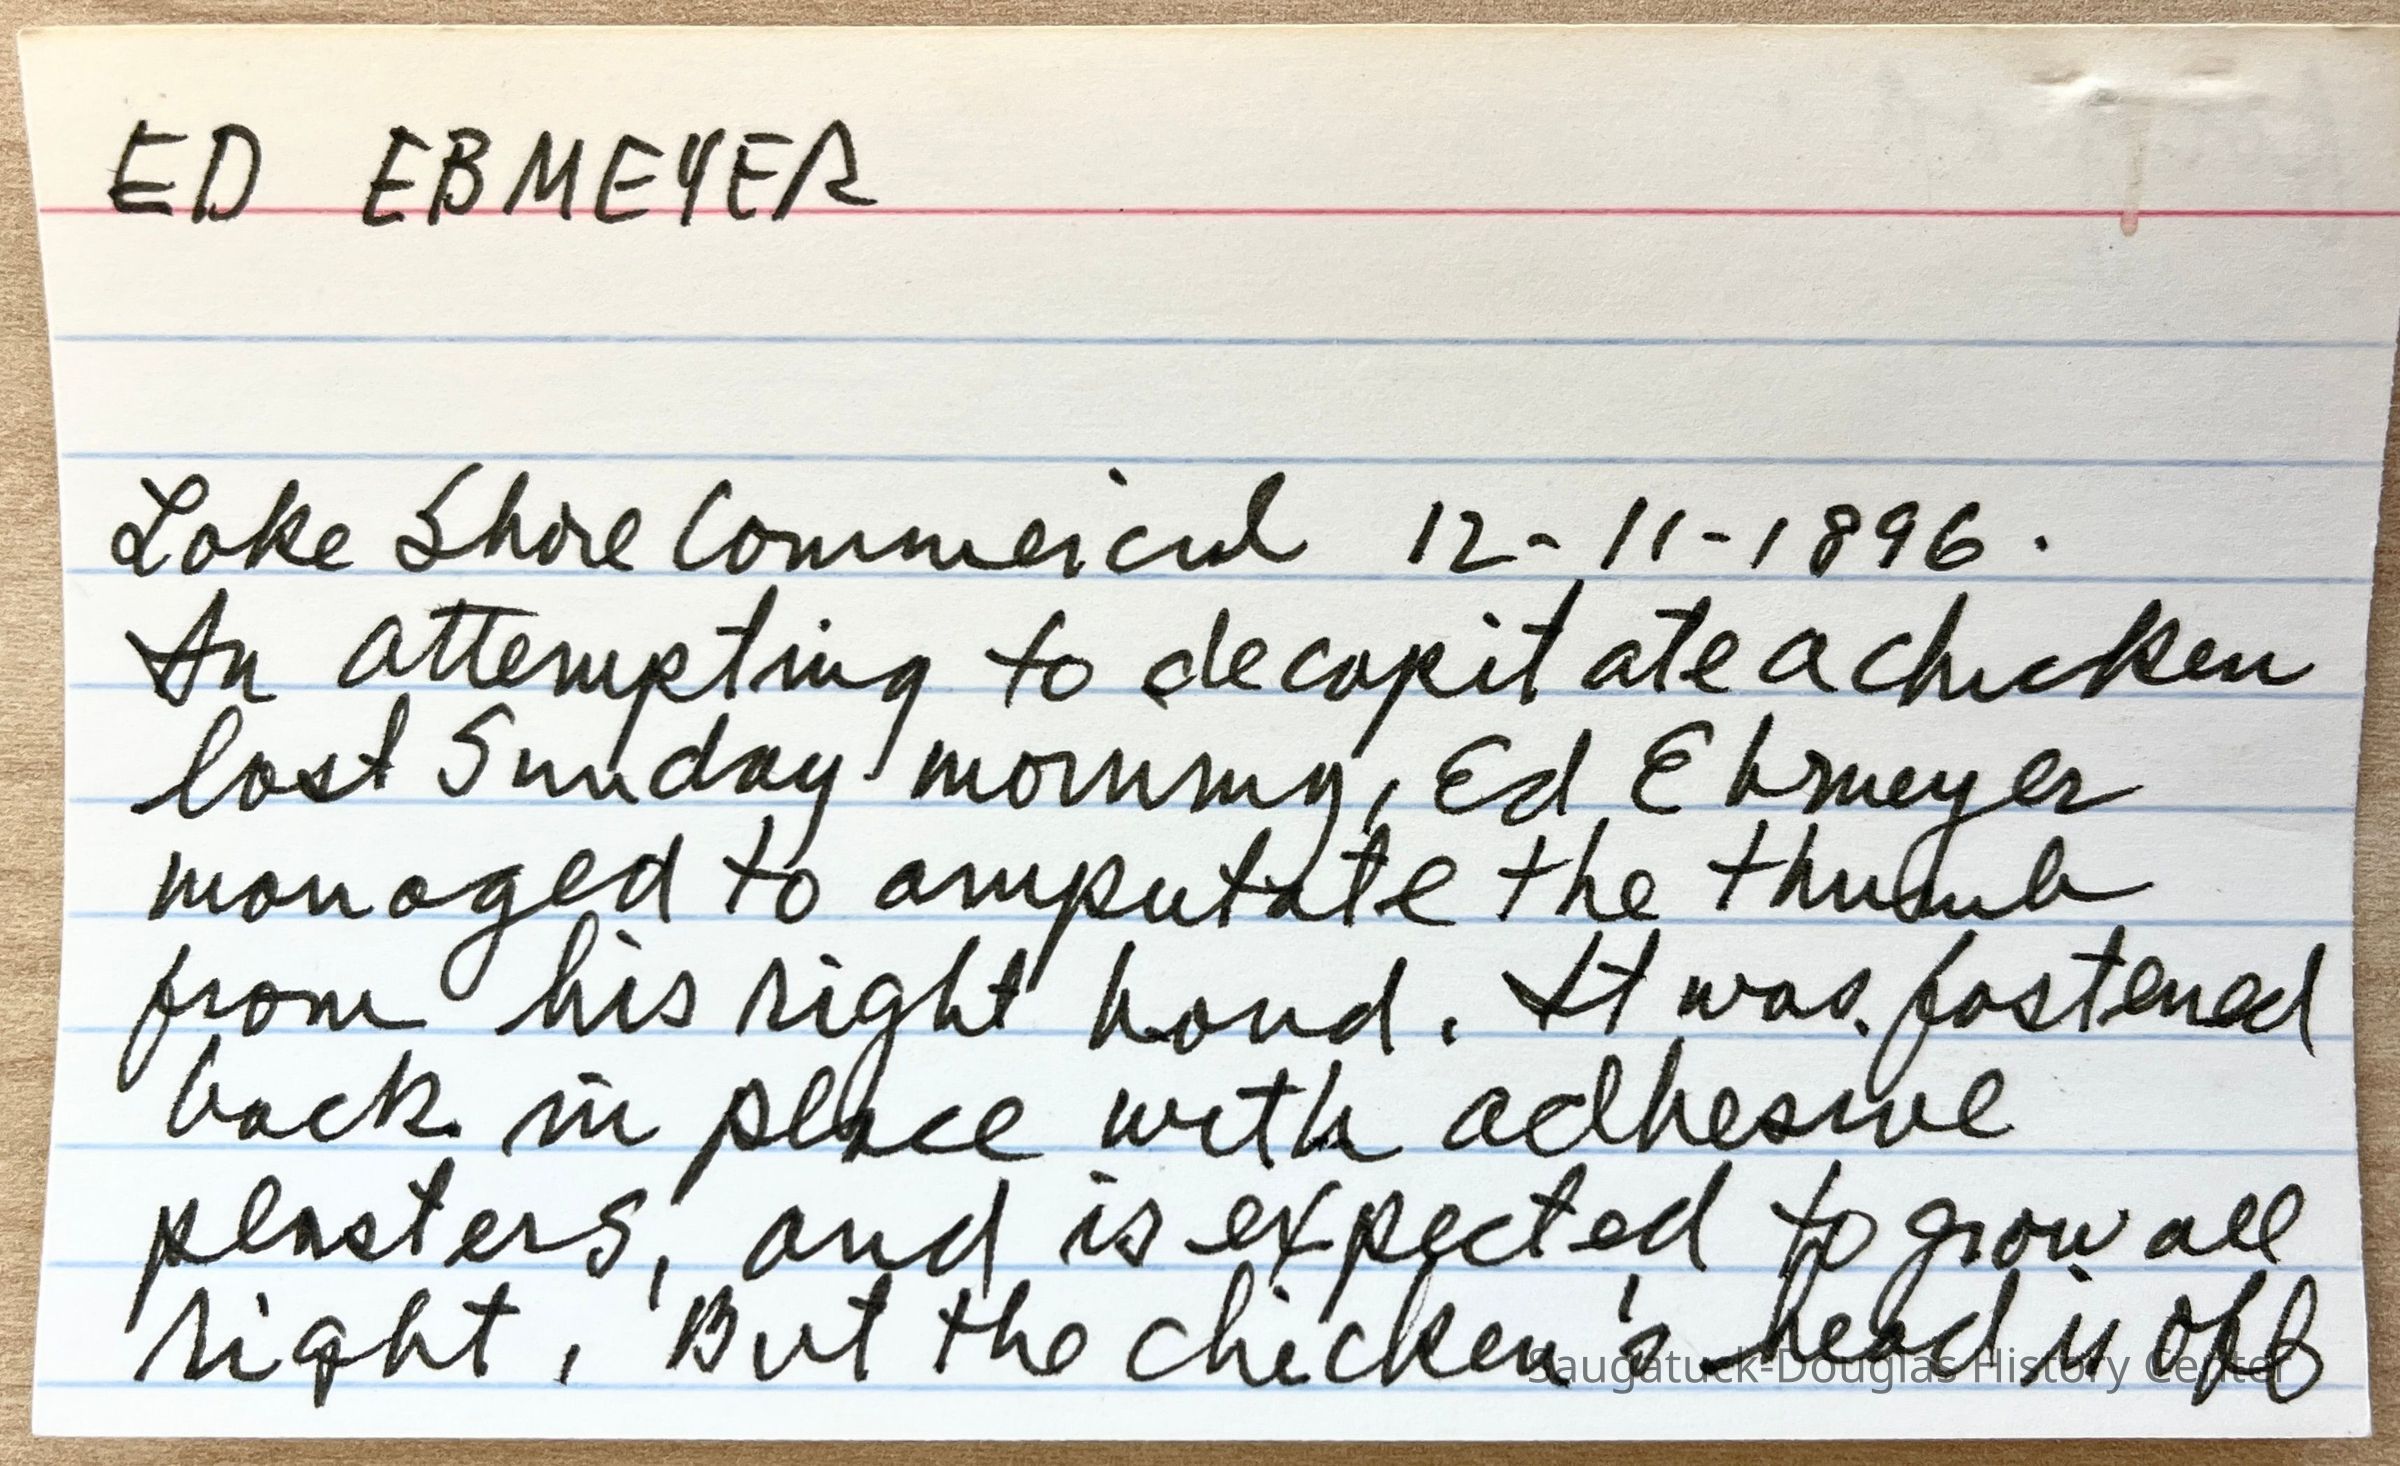 ED EBMEYER
Lake Shore Commercial 12-11-1896.
In attempting to decapitate a chicken
last Sunday morning, Ed Ebmeyer
managed to amputate the thumb
from his right hand. It was fastened
back in place with adhesive
plasters, and is expected to grow all
right. But the chicken's head is off
Saugatuck-Douglas History Center